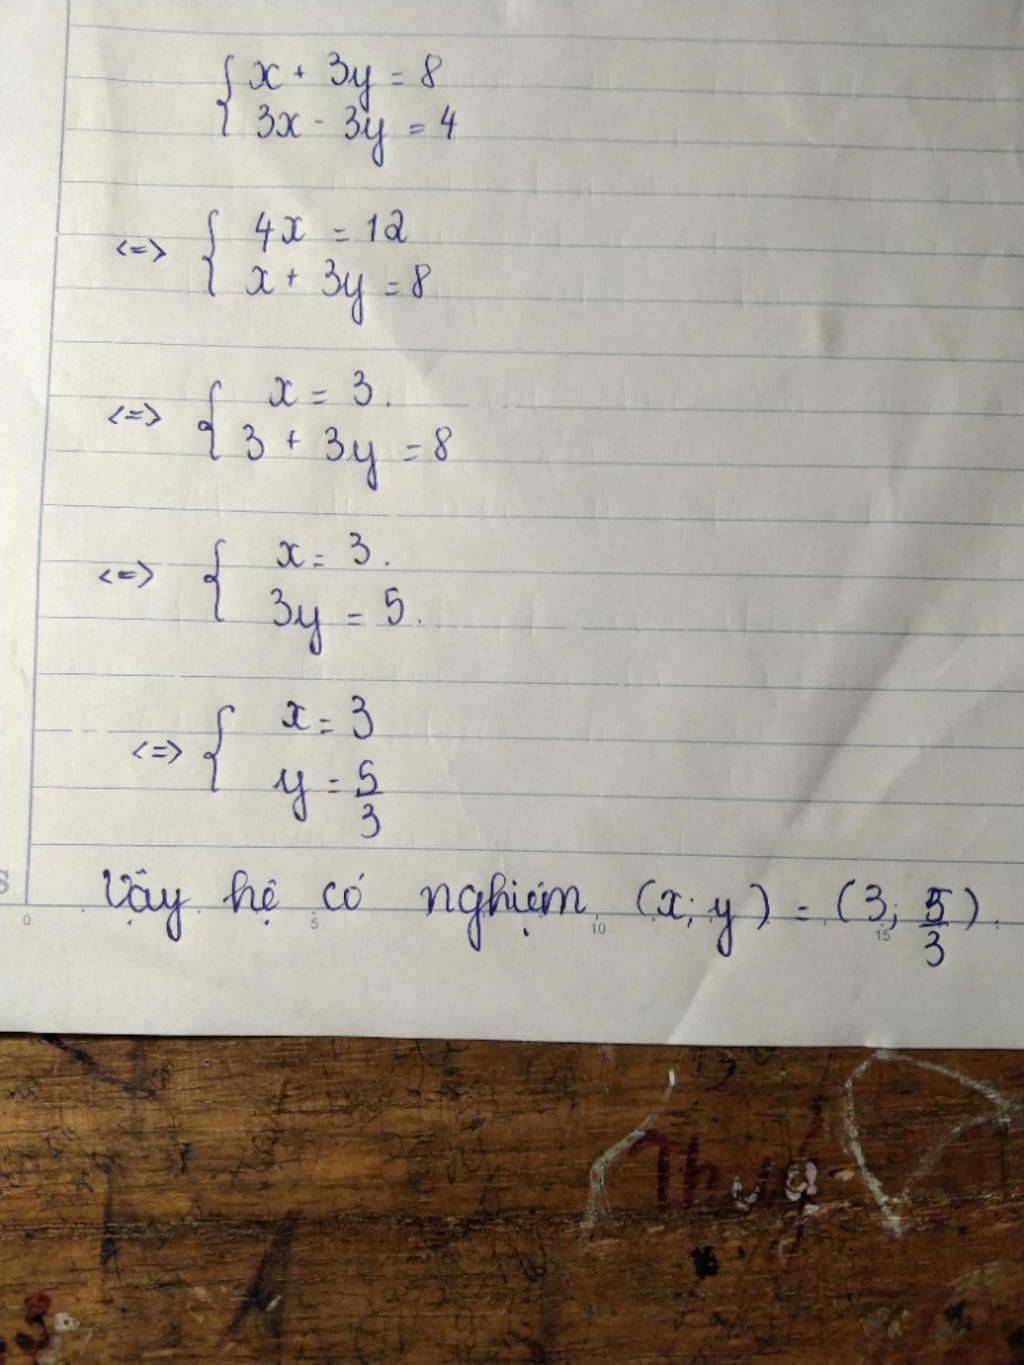 x + 3y = 8
3x - 3y = 4
<=> 4x = 12
x + 3y = 8
<=> x = 3.
3 + 3y = 8
<=> x = 3.
3y = 5.
<=> x = 3
y = 5/3
Vậy hệ có nghiệm (x; y) = (3; 5/3).
0 5 10 15
Thuý